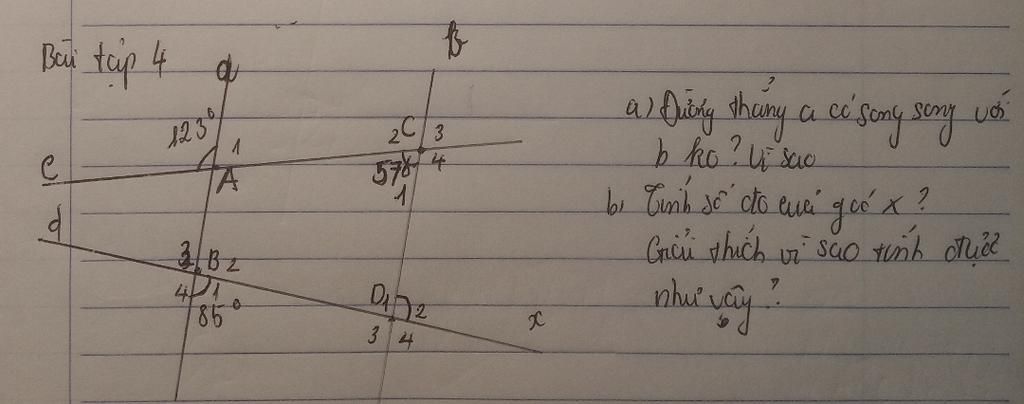 Bài tập 4
a
B
123°
1
2 C 3
4
57°
1
A
c
d
3 B 2
4 1
85°
D 1 2
3 4
x
a) Đường thẳng a có song song với
b ko? Vì sao
b, Tính số đo của góc x?
Giải thích vì sao tính được
như vậy?